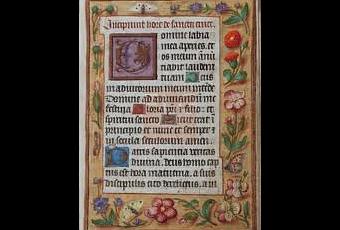 Incipiunt hore de sancta cruce.
Domine labia
mea aperies. et
os meum annū
ciabit laudem
tuam Deus
in adiutorium meum intēde
Domine ad adiuuandū me
festina Gloria pr̄i et filio: et
spiritui sancto Sicut erat ī
principio et nunc et semper et
in secula seculorum amen.
Patris sapientia veritas
diuina. deus homo cap
tus est hora matutina. a suis
discipulis cito derelictus. a iu